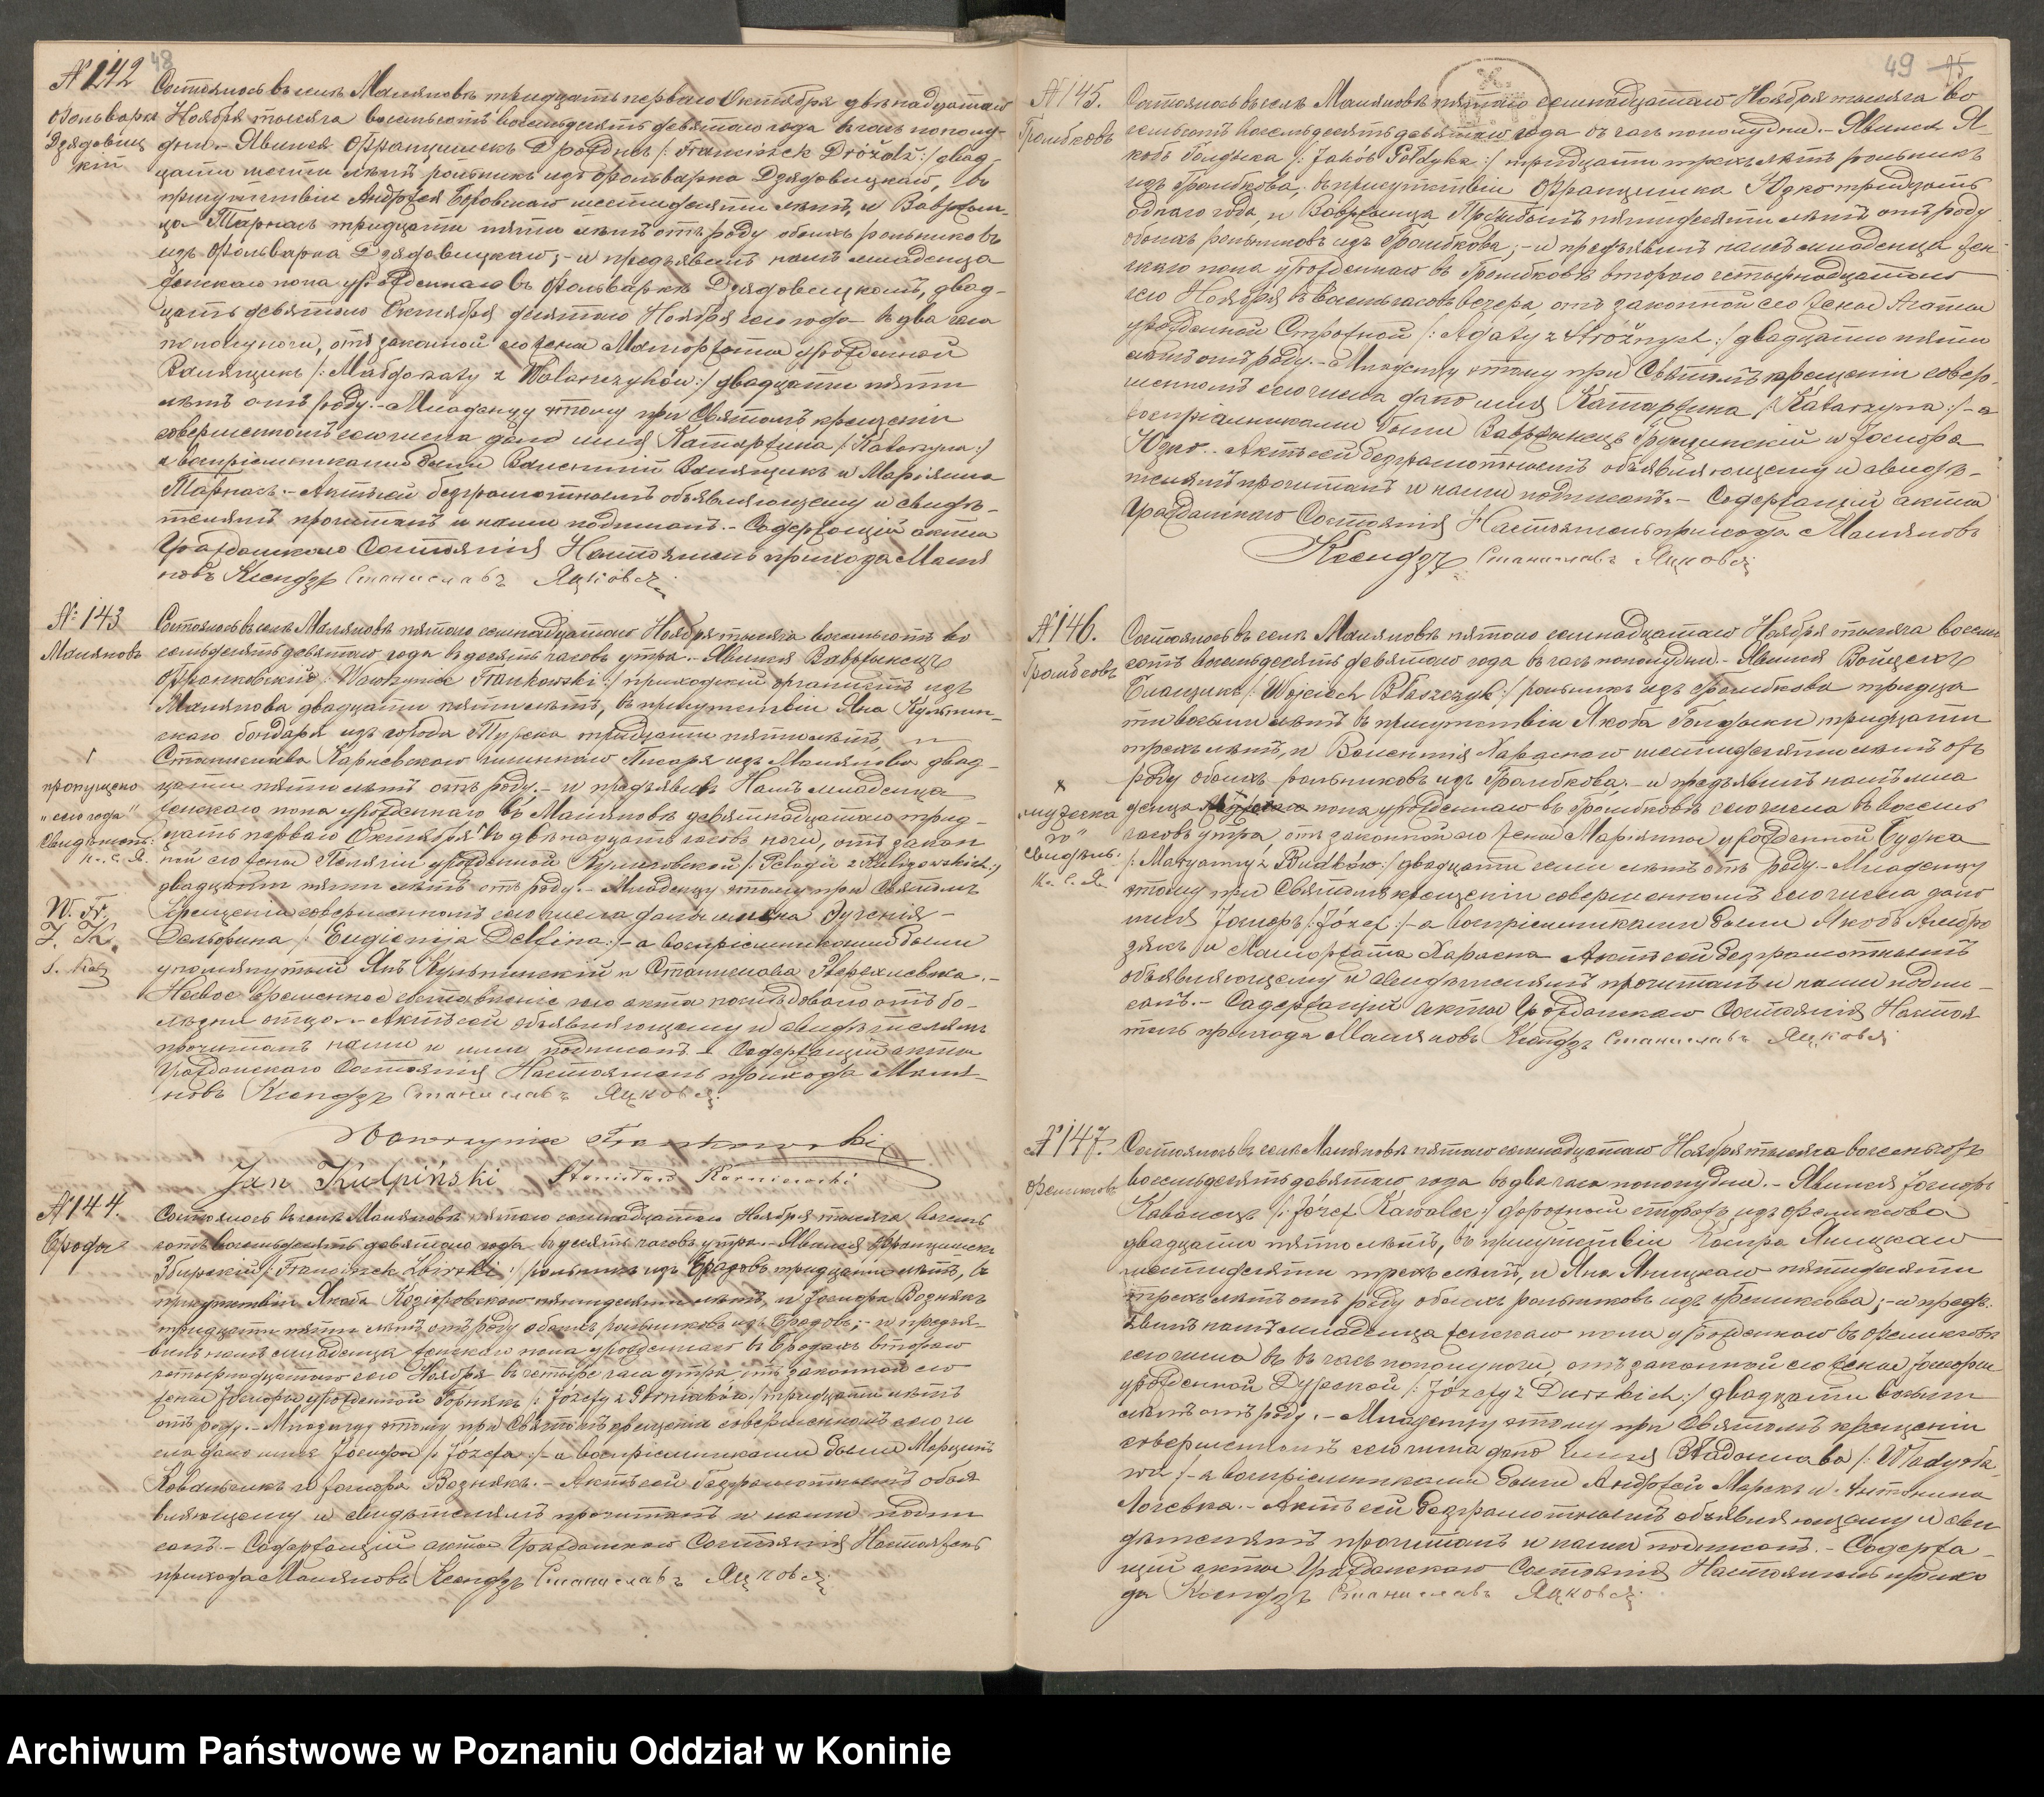 48
№ 142
Фольварки
Дзядовиц
кій
Состоялось въ селѣ Маляновѣ тридцать перваго Октября двѣнадцатаго
Ноября тысяча восемьсотъ восемьдесятъ девятаго года въ часъ пополу-
дни.- Явился Францишекъ /: Franciszek Dróżdż :/ двад-
цати шести лѣтъ рольникъ изъ Фольварка Дзядовицкаго, въ
присутствіи Андржея Боровскаго шестидесяти лѣтъ, и Вавржин-
ца Тарнасъ тридцати пяти лѣтъ отъ роду обоихъ рольниковъ
изъ Фольварка Дзядовицкаго; - и предъявилъ намъ младенца
женскаго пола урожденнаго въ Фольваркѣ Дзядовицкомъ, двад-
цать девятаго Октября десятаго Ноября сего года въ два часа
пополуночи, отъ законной его жены Малгоржаты урожденной
Валящикъ /: Małgorzaty z Walaszczyków :/ двадцати пяти
лѣтъ отъ роду.- Младенцу этому при Святомъ крещеніи
совершенномъ сего числа дано имя Катаржина /: Katarzyna :/
а воспріемниками были Валентій Валящикъ и Маріянна
Тарнасъ.- Актъ сей безграмотнымъ объявляющему и свидѣ-
телямъ прочитанъ и нами подписанъ.- Содержащій акты
Гражданскаго Состоянія Настоятель прихода Маля
новъ Ксендзъ Станиславъ
№ 143
Маляновъ
пропущено
"сего года"
Свидѣтель.
К. С. Я.
W. Fr.
J. K.
S. Kar
Состоялось въ селѣ Маляновѣ пятаго семнадцатаго Ноября тысяча восемьсотъ во
семьдесятъ девятаго года въ десять часовъ утра.- Явился Вавржынецъ
Франковскій /: Wawrzyniec Frankowski :/ приходскій органистъ изъ
Малянова двадцати пяти лѣтъ, въ присутствіи Яна Кульпин-
скаго бондаря изъ города Турека тридцати пяти лѣтъ, и
Станислава Карневскаго гминнаго Писаря изъ Малянова двад-
цати пяти лѣтъ отъ роду.- и предъявилъ Намъ младенца
женскаго пола урожденнаго въ Маляновѣ девятнадцатаго трид-
цать перваго Октября въ двѣнадцать часовъ ночи, отъ закон
ной его жены Пелягіи урожденной /: Pelagii z Kuligowskich :/
двадцати пяти лѣтъ отъ роду.- Младенцу этому при Святомъ
Крещеніи совершенномъ сего числа даны имена Эугенія -
Дельфина /: Eugienija Delfina :/ - а воспріемниками были
упомянутый Янъ Кульпинскій и Станислава
Несвоевременное составленіе сего акта послѣдовало отъ бо-
лѣзни отца.- Актъ сей объявляющему и свидѣтелямъ
прочитанъ нами и ими подписанъ.- Содержащій акты
Гражданскаго Состоянія Настоятель прихода Маля-
новъ Ксендзъ Станиславъ
Wawrzyniec Frankowski
Jan Kulpiński Stanisław Karniewski
№ 144.
Броды
Состоялось въ селѣ Маляновѣ пятаго семнадцатаго Ноября тысяча восемь
сотъ восемьдесятъ девятаго года въ десять часовъ утра.- Явился Францишекъ
Збирскій /: Franciszek Zbirski :/ рольникъ изъ Бродовъ тридцати лѣтъ, въ
присутствіи Якоба пятидесяти лѣтъ, и Іосифа Вознякъ
тридцати пяти лѣтъ отъ роду обоихъ рольниковъ изъ Бродовъ;- и предъя-
вилъ намъ младенца женскаго пола урожденнаго въ Бродахъ втораго
четырнадцатаго сего Ноября въ четыре часа утра, отъ законной его
жены Іосифы урожденной Горнякъ /: Józefy z Górniaków :/ тридцати лѣтъ
отъ роду.- Младенцу этому при Святомъ крещеніи совершенномъ сего чи
сла дано имя Іосифа /: Józefa :/ - а воспріемниками были Марцинъ
и Іосифа Вознякъ.- Актъ сей безграмотнымъ объя
вляющему и свидѣтелямъ прочитанъ и нами подпи
санъ.- Содержащій акты Гражданскаго Состоянія Настоятель
прихода Маляновъ Ксендзъ Станиславъ
49
№ 145.
Грамбковъ
Состоялось въ селѣ Маляновѣ пятаго семнадцатаго Ноября тысяча во
семьсотъ восемьдесятъ девятаго года въ часъ пополудни.- Явился Я-
кобъ Голдыка /: Jakób Gołdyka :/ тридцати трехъ лѣтъ рольникъ
изъ Грамбкова, въ присутствіи Францишка Юдко тридцать
одного года, и Вавржинца пятидесяти лѣтъ отъ роду
обоихъ рольниковъ изъ Грамбкова;- и предъявилъ намъ младенца жен-
скаго пола урожденнаго въ Грамбковѣ втораго четырнадцатаго
сего Ноября въ восемь часовъ вечера, отъ законной его жены Агаты
урожденной Строжной /: Agaty z Stróżnych :/ двадцати пяти
лѣтъ отъ роду.- Младенцу этому при Святомъ крещеніи совер-
шенномъ сего числа дано имя Катаржина /: Katarzyna :/ - а
воспріемниками были Вавржинецъ и Іосифа
Юдко.- Актъ сей безграмотнымъ объявляющему и свидѣ-
телямъ прочитанъ и нами подписанъ.- Содержащій акты
Гражданскаго Состоянія Настоятель прихода Маляновъ
Ксендзъ Станиславъ
№ 146.
Грамбковъ
"мужеска
го"
свидѣтель.
К. С. Я.
Состоялось въ селѣ Маляновѣ пятаго семнадцатаго Ноября тысяча восемь
сотъ восемьдесятъ девятаго года въ часъ пополудни.- Явился Войцехъ
Блащикъ /: Wojciech Błaszczyk :/ рольникъ изъ Грамбкова тридца
ти восьми лѣтъ въ присутствіи Якоба Голдыки тридцати
трехъ лѣтъ, и Валентія шестидесяти лѣтъ отъ
роду обоихъ рольниковъ изъ Грамбкова,- и предъявилъ намъ мла
денца пола урожденнаго въ Грамбковѣ сего числа въ восемь
часовъ утра, отъ законной его жены Маріянны урожденной Будка
/: Maryanny z Budków :/ двадцати семи лѣтъ отъ роду.- Младенцу
этому при Святомъ крещеніи совершенномъ сего числа дано
имя Іосифъ /: Józef :/ - а воспріемниками были Якобъ
и Малгоржата Актъ сей безграмотнымъ
объявляющему и свидѣтелямъ прочитанъ и нами подпи-
санъ.- Содержащій акты Гражданскаго Состоянія Настоя
тель прихода Маляновъ Ксендзъ Станиславъ
№ 147.
Феликсовъ
Состоялось въ селѣ Маляновѣ пятаго семнадцатаго Ноября тысяча восемьсотъ
восемьдесятъ девятаго года въ два часа пополудни.- Явился Іосифъ
Кавалецъ /: Józef Kawalec :/ дорожный стражъ изъ Феликсова
двадцати пяти лѣтъ, въ присутствіи Яницкаго
шестидесяти трехъ лѣтъ, и Яна Яницкаго пятидесяти
трехъ лѣтъ отъ роду обоихъ рольниковъ изъ Феликсова;- и предъ-
явилъ намъ младенца женскаго пола урожденнаго въ Феликсовѣ
сего числа въ часъ пополуночи, отъ законной его жены Іосифы
урожденной Дурской /: Józefy z Durskich :/ двадцати восьми
лѣтъ отъ роду.- Младенцу этому при Святомъ крещеніи
совершенномъ сего числа дано имя Владислава /: Władysła-
wa :/ - а воспріемниками были Андржей Марекъ и Антонина
Актъ сей безграмотнымъ объявляющему и сви
дѣтелямъ прочитанъ и нами подписанъ.- Содержа-
щій акты Гражданскаго Состоянія Настоятель прихо
да Ксендзъ Станиславъ
Archiwum Państwowe w Poznaniu Oddział w Koninie